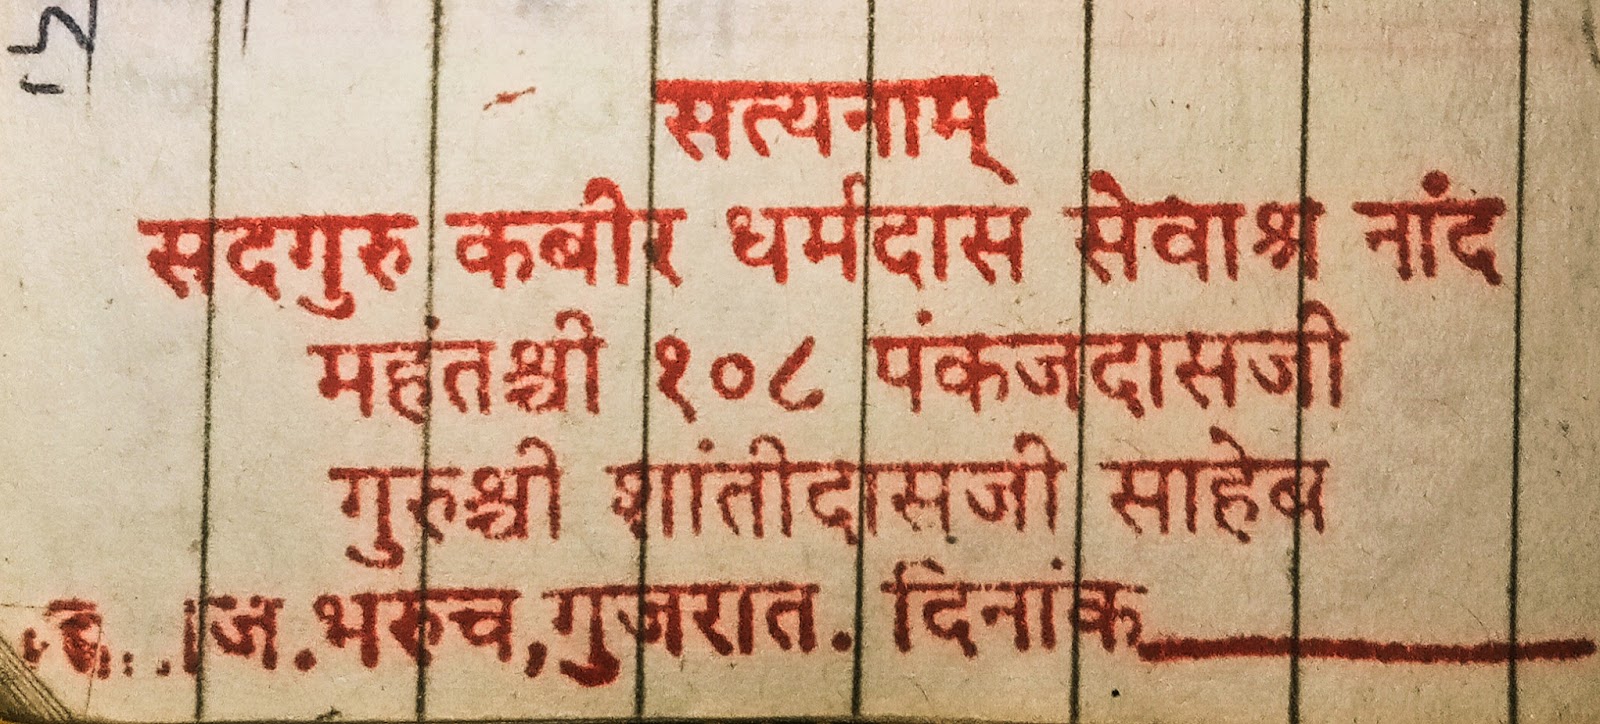 सत्यनाम्
सदगुरु कबीर धर्मदास सेवाश्र नांद
महंतश्री १०८ पंकजदासजी
गुरुश्री शांतीदासजी साहेब
जि.भरुच,गुजरात. दिनांक